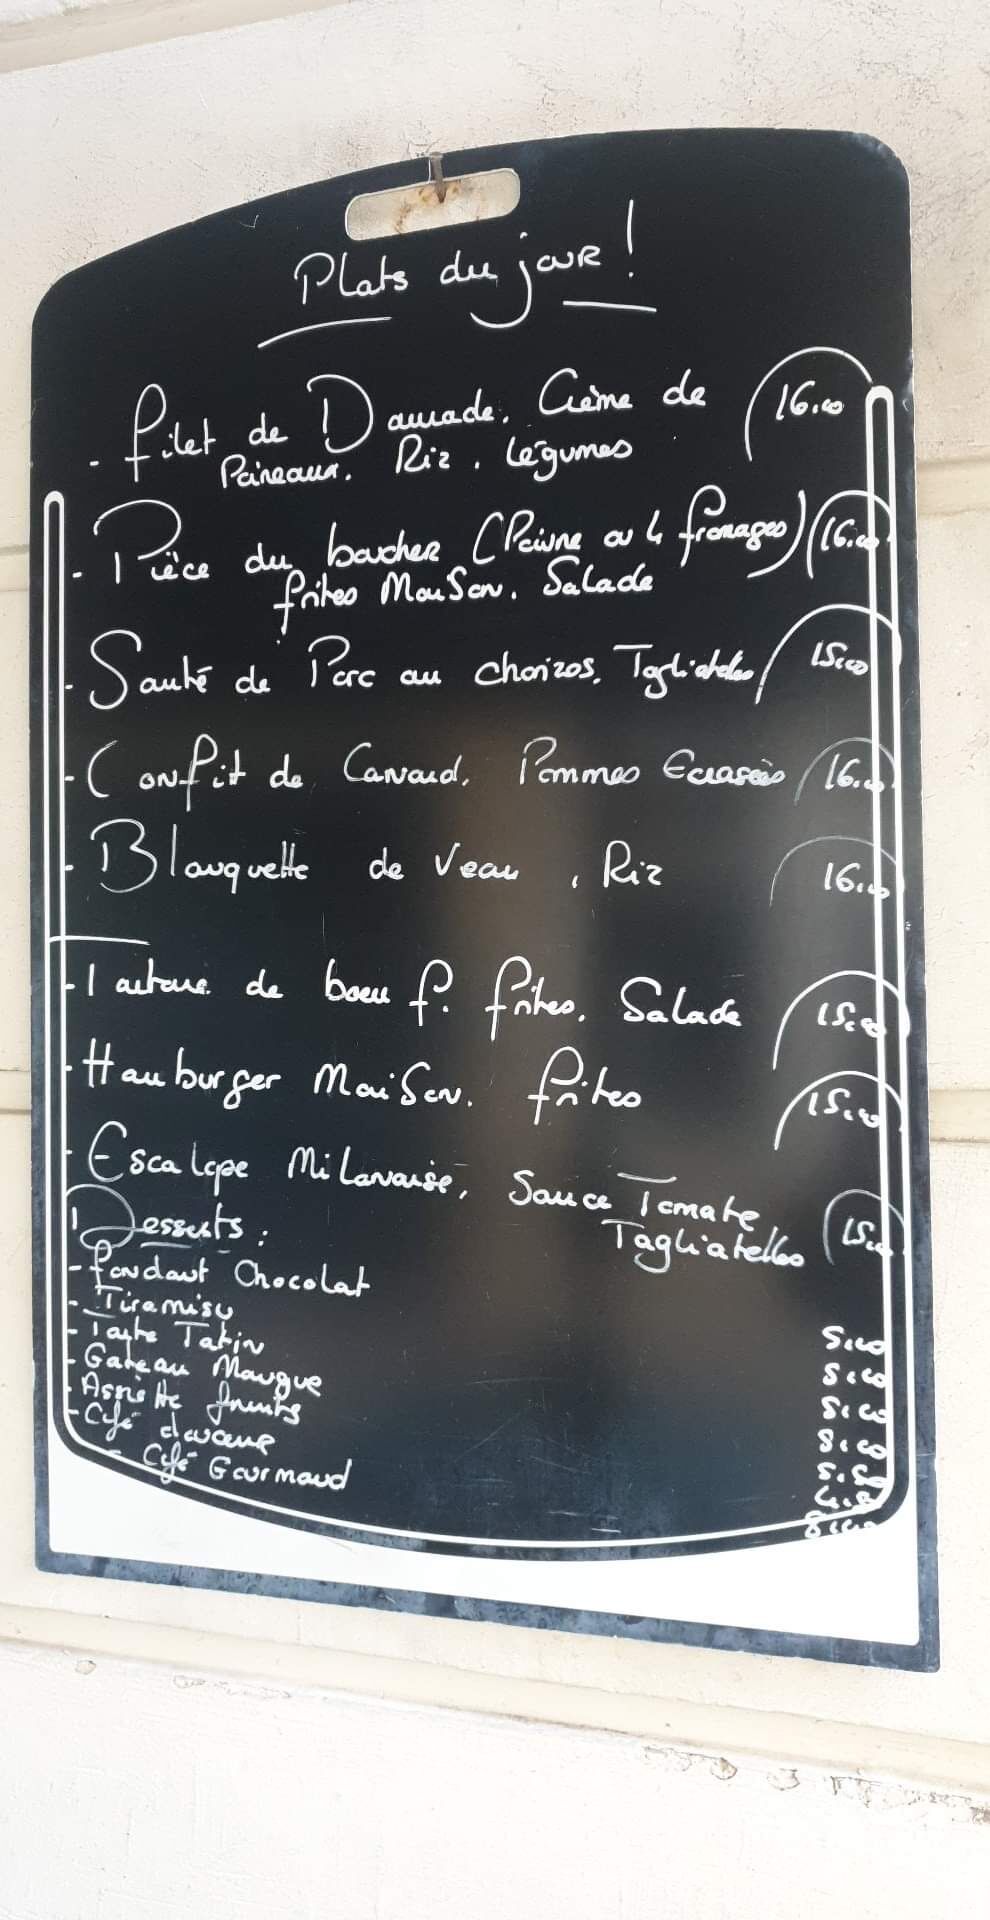 Plats du jour !
- Filet de Daurade. Crème de 16.00
Poireaux. Riz. Légumes
- Pièce du boucher (Poivre ou 4 fromages) 16.00
frites Maison. Salade
- Sauté de Porc au chorizos. Tagliatelles 15.00
- Confit de Canard. Pommes Ecrasées 16.00
- Blanquette de Veau, Riz 16.00
- Tartare de boeuf. frites. Salade 15.00
- Hamburger Maison. frites 15.00
- Escalope Milanaise, Sauce Tomate
Tagliatelles 15.00
Desserts :
- Fondant Chocolat
- Tiramisu 5.00
- Tarte Tatin 5.00
- Gateau Mangue 5.00
- Assiette fruits
- Café douceur
- Café Gourmand